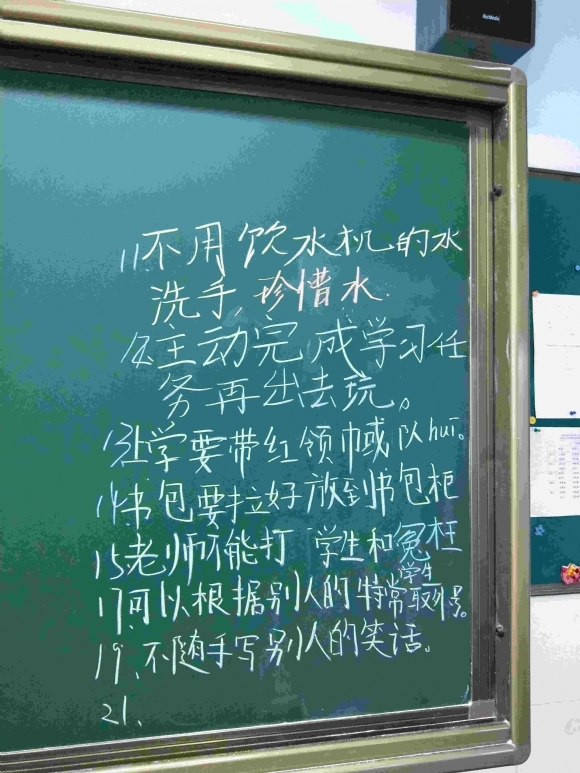 11不用饮水机的水
洗手，珍惜水
主动完成学习任
务再出去玩。
13上学要带红领巾或队huī。
书包要拉好放到书包柜
15老师不能打学生和冤枉
学生
17可以根据别人的特常取外号。
19、不随手写别人的笑话。
21、